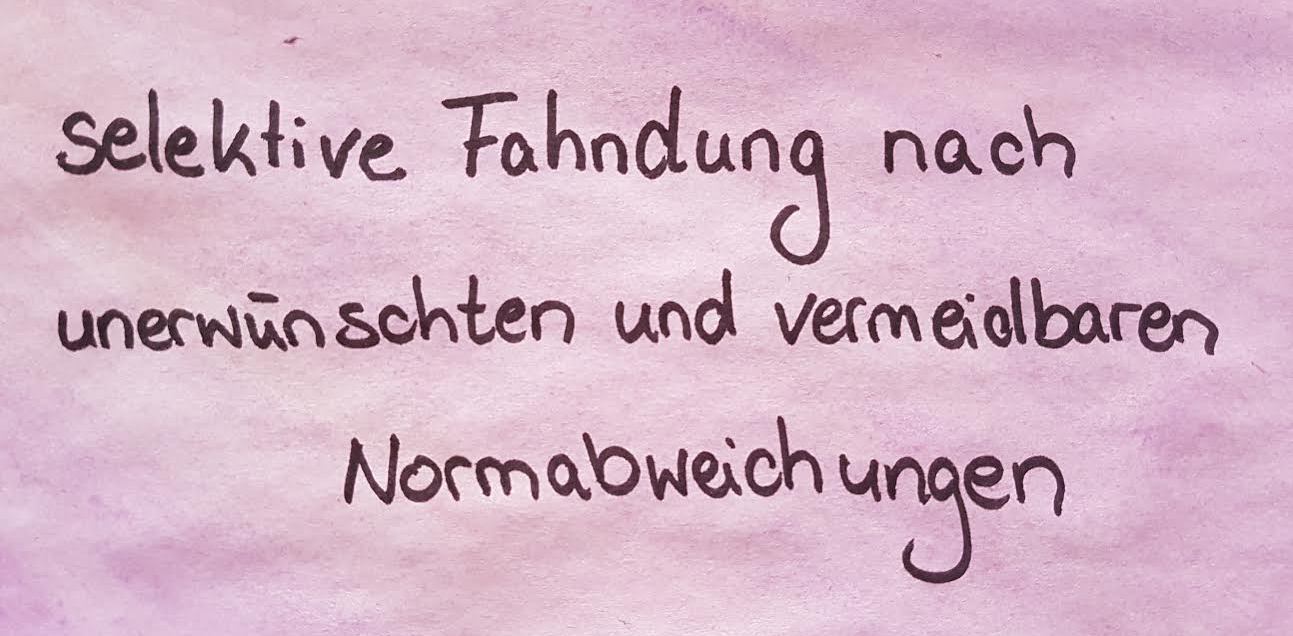 selektive Fahndung nach
unerwünschten und vermeidbaren
Normabweichungen